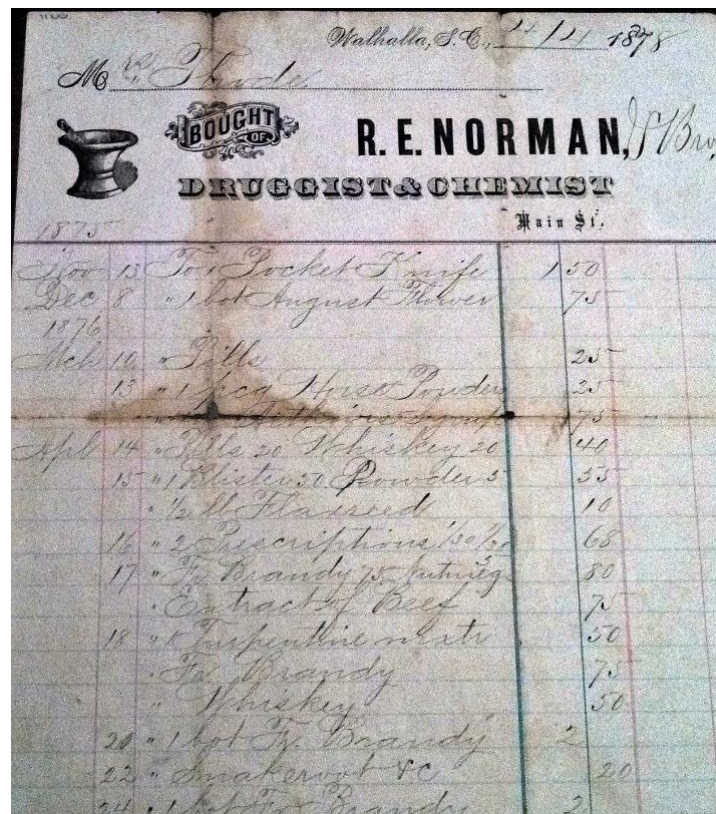 Walhalla, S. C., 4/4 1878
M
BOUGHT
OF
R. E. NORMAN, & Bro,
DRUGGIST & CHEMIST
Main St.
1875
Nov 13 To 1 Pocket Knife 1 50
Dec 8 " 1 bot August Flower 75
1876
Mch 10 " Pills 25
13 " 1 pcg Horse Powders 25
" Syrup 75
Apl 14 " Pills 20 Whiskey 20 40
15 " 1 Blister 50 Powder 5 55
" 1/2 lb Flaxseed 10
16 " 2 Prescriptions 68
17 " Fr Brandy 75 nutmeg 80
" Extract of Beef 75
18 " Turpentine mixtr 50
" Fr Brandy 75
" Whiskey 50
20 " 1 bot Fr. Brandy 2
22 " Snakeroot &C 20
24 " 1 bot Fr Brandy 2